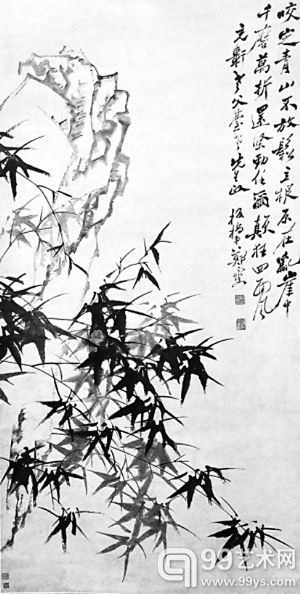 咬定青山不放鬆立根原在亂崖中
千磨萬折還堅勁任爾顛狂四面風
元 父臺 先生政
板橋 鄭燮
99艺术网
www.99ys.com